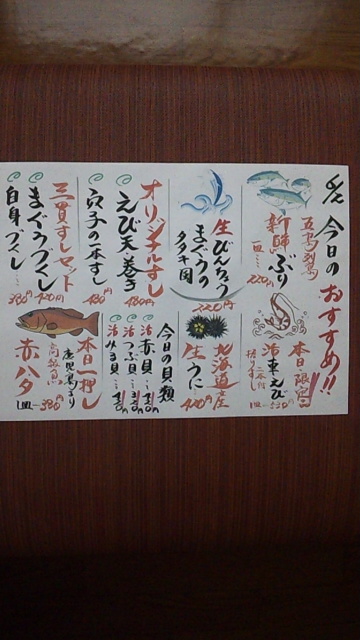 今日のおすすめ!!
五島列島
新鮮ぶり
一皿…220円
本日限定
活車えび
一皿…530円
生びんちょう
まぐろの
タタキ風
220円
北海道産
生うに
420円
オリジナルすし
えび天巻き
480円
穴子の一本すし
480円
今日の貝類
活赤貝…310円
活つぶ貝…310円
活みる貝…310円
三貫すしセット
まぐろづくし
420円
白身づくし…
380円
本日一押し
鹿児島より
高級魚
赤ハタ
一皿…380円